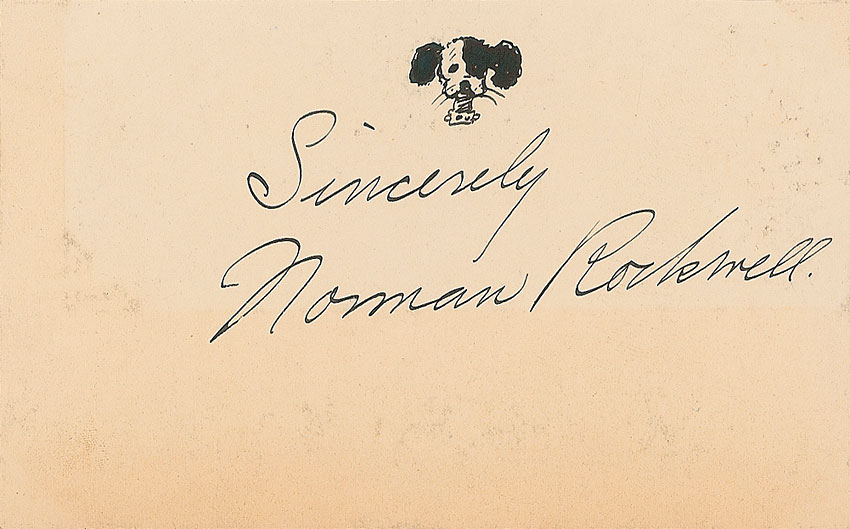 Sincerely
Norman Rockwell.